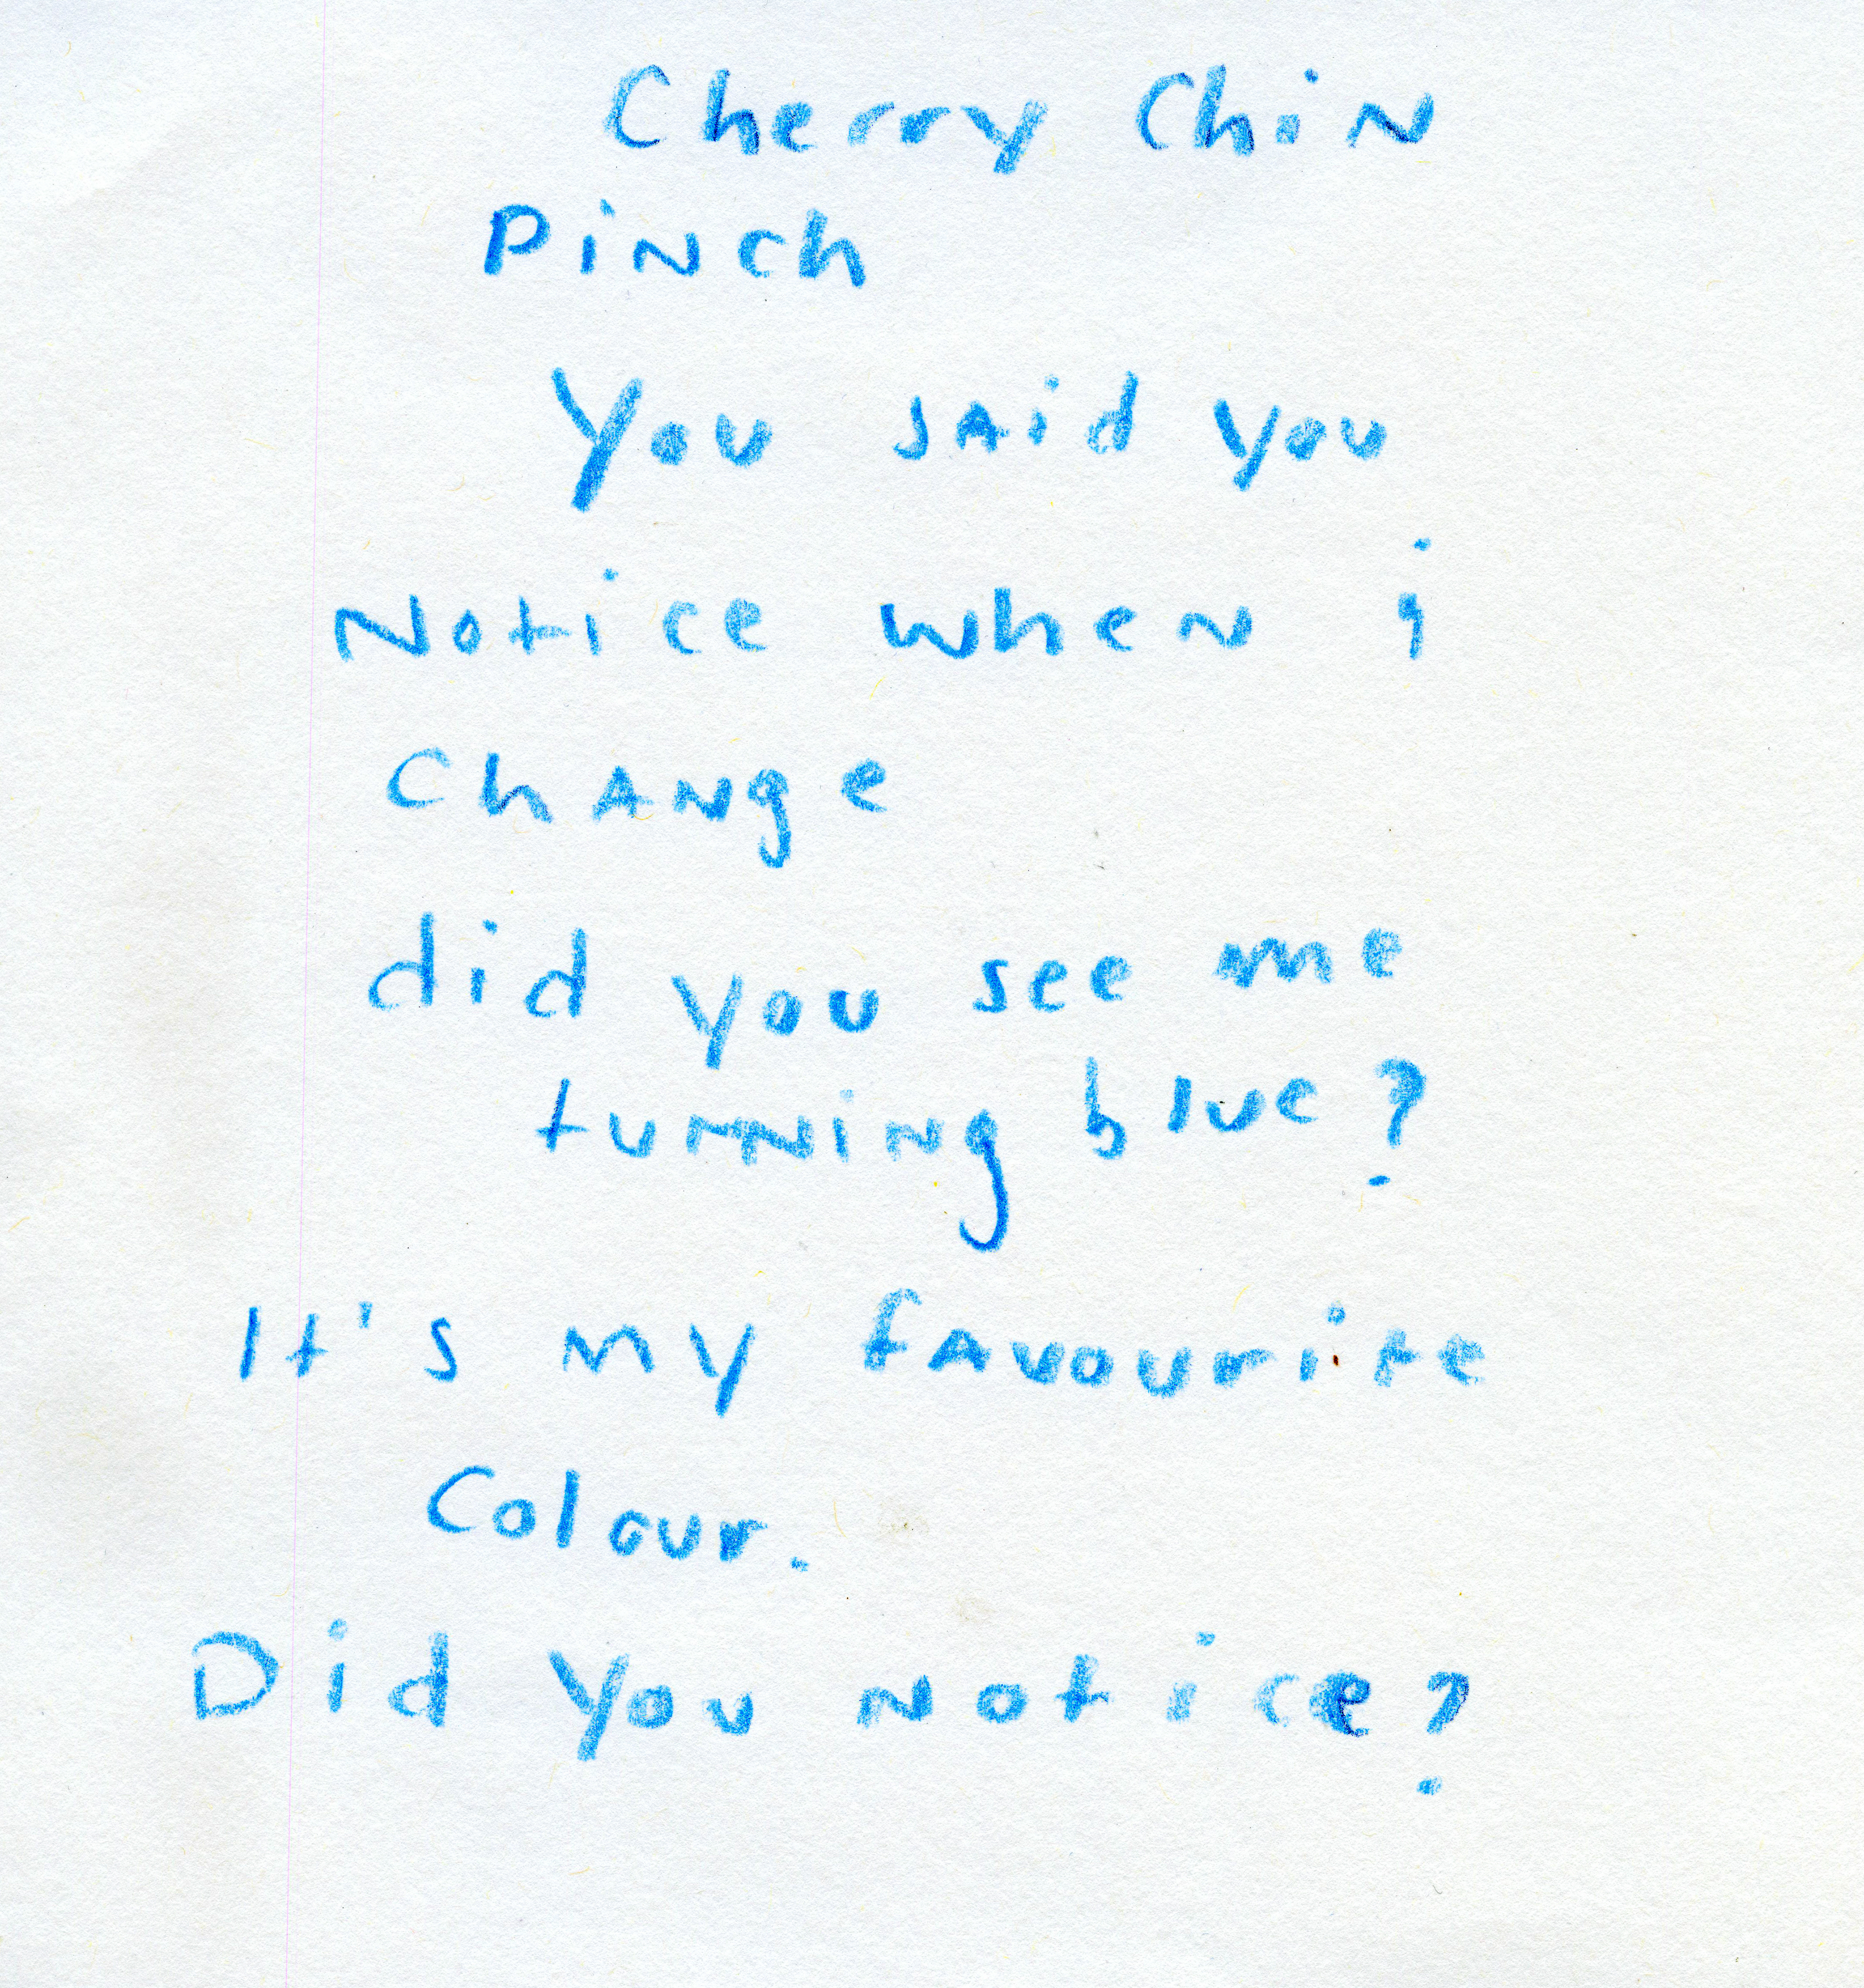 Cherry Chin
Pinch
You said you
Notice when i
Change
did you see me
turning blue?
It's my favourite
Colour.
Did you notice?